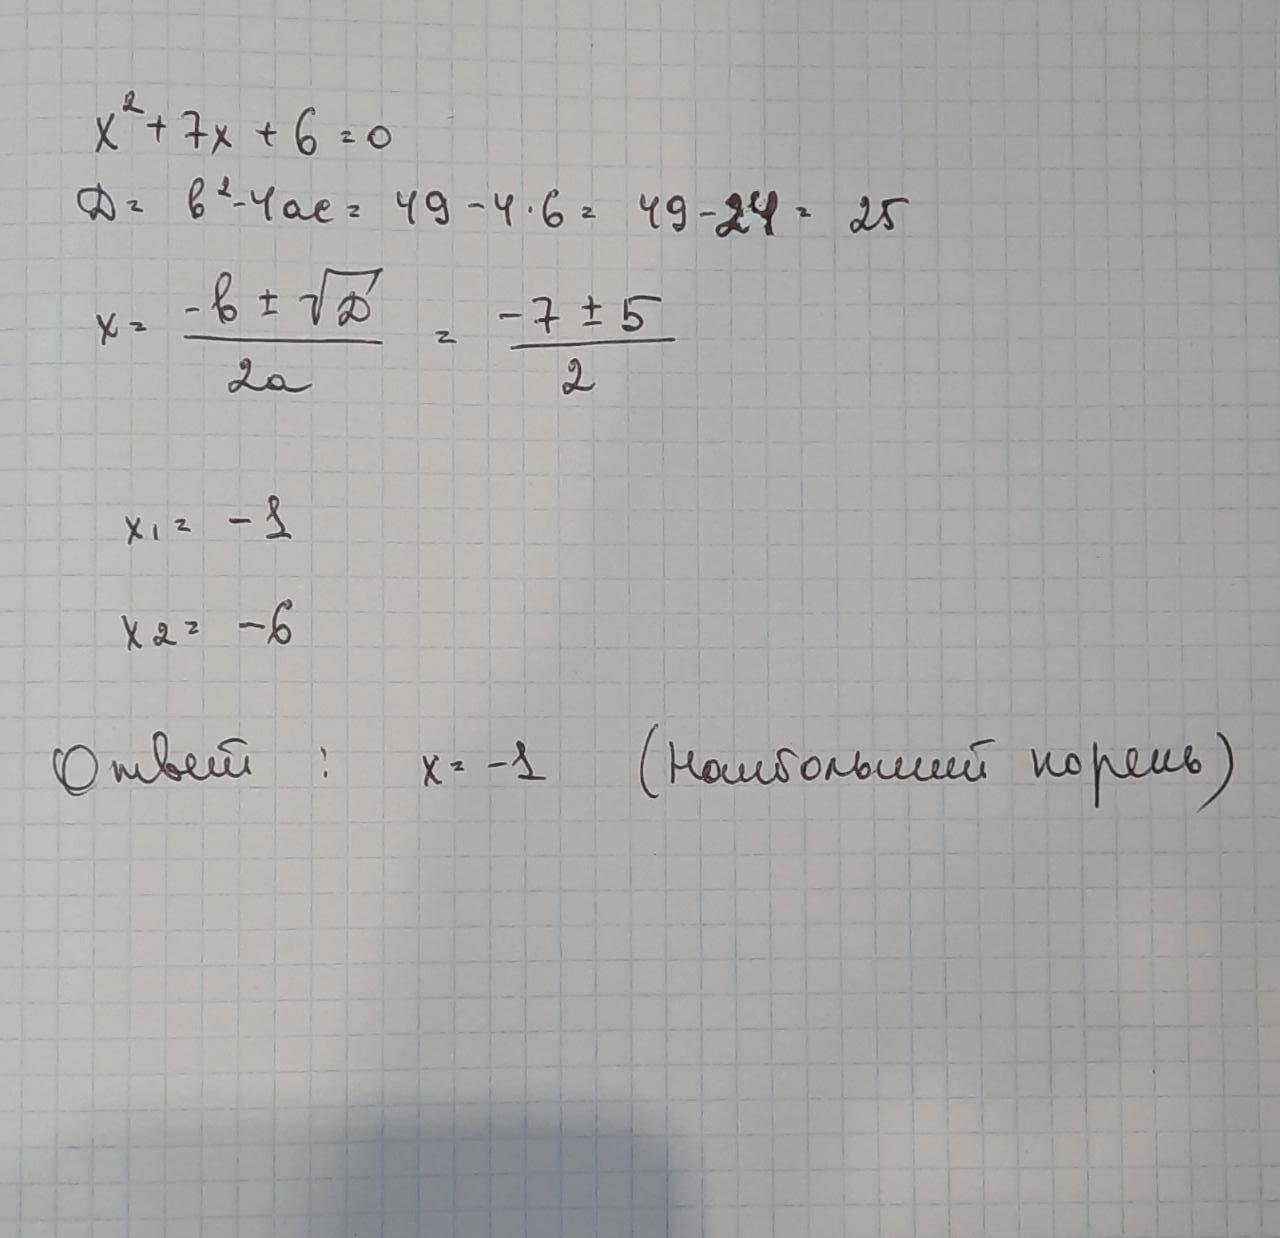 x² + 7x + 6 = 0
D = b² - 4ac = 49 - 4·6 = 49 - 24 = 25
x = (-b ± √D) / 2a = (-7 ± 5) / 2
x₁ = -1
x₂ = -6
Ответ : x = -1 (Наибольший корень)